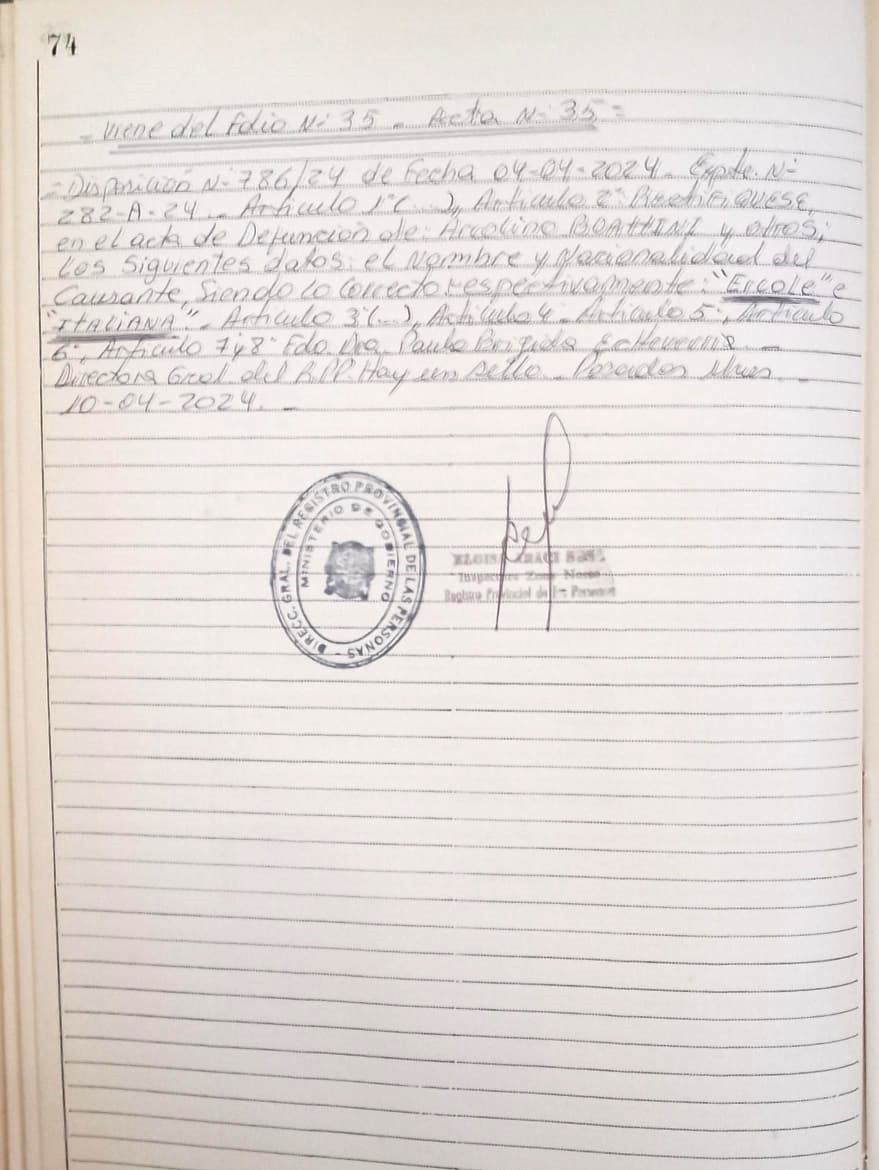 74
= Viene del folio N: 35 - Acta N: 35 =
= Disposición N: 786/24 de Fecha 04-04-2024 - Expte. N:
282-A-24 - Articulo 1º(...), Articulo 2º: RectiFIQUESE,
en el acta de Defunción de: Arcolino BOATTINI y otros;
los siguientes datos: el Nombre y Nacionalidad del
Causante, siendo lo correcto respectivamente: "Ercole" e
"ITALIANA" - Articulo 3º(...), Articulo 4 - Articulo 5º, Articulo
6º, Articulo 7 y 8º Fdo. Dra. Paula Brigida
Directora Gral. del R.P.P. Hay un sello - Posadas Mnes
10-04-2024. -
DIRECC. GRAL. DEL REGISTRO PROVINCIAL DE LAS PERSONAS -
MINISTERIO DE GOBIERNO
Zona Norte
Registro Provincial de las Personas